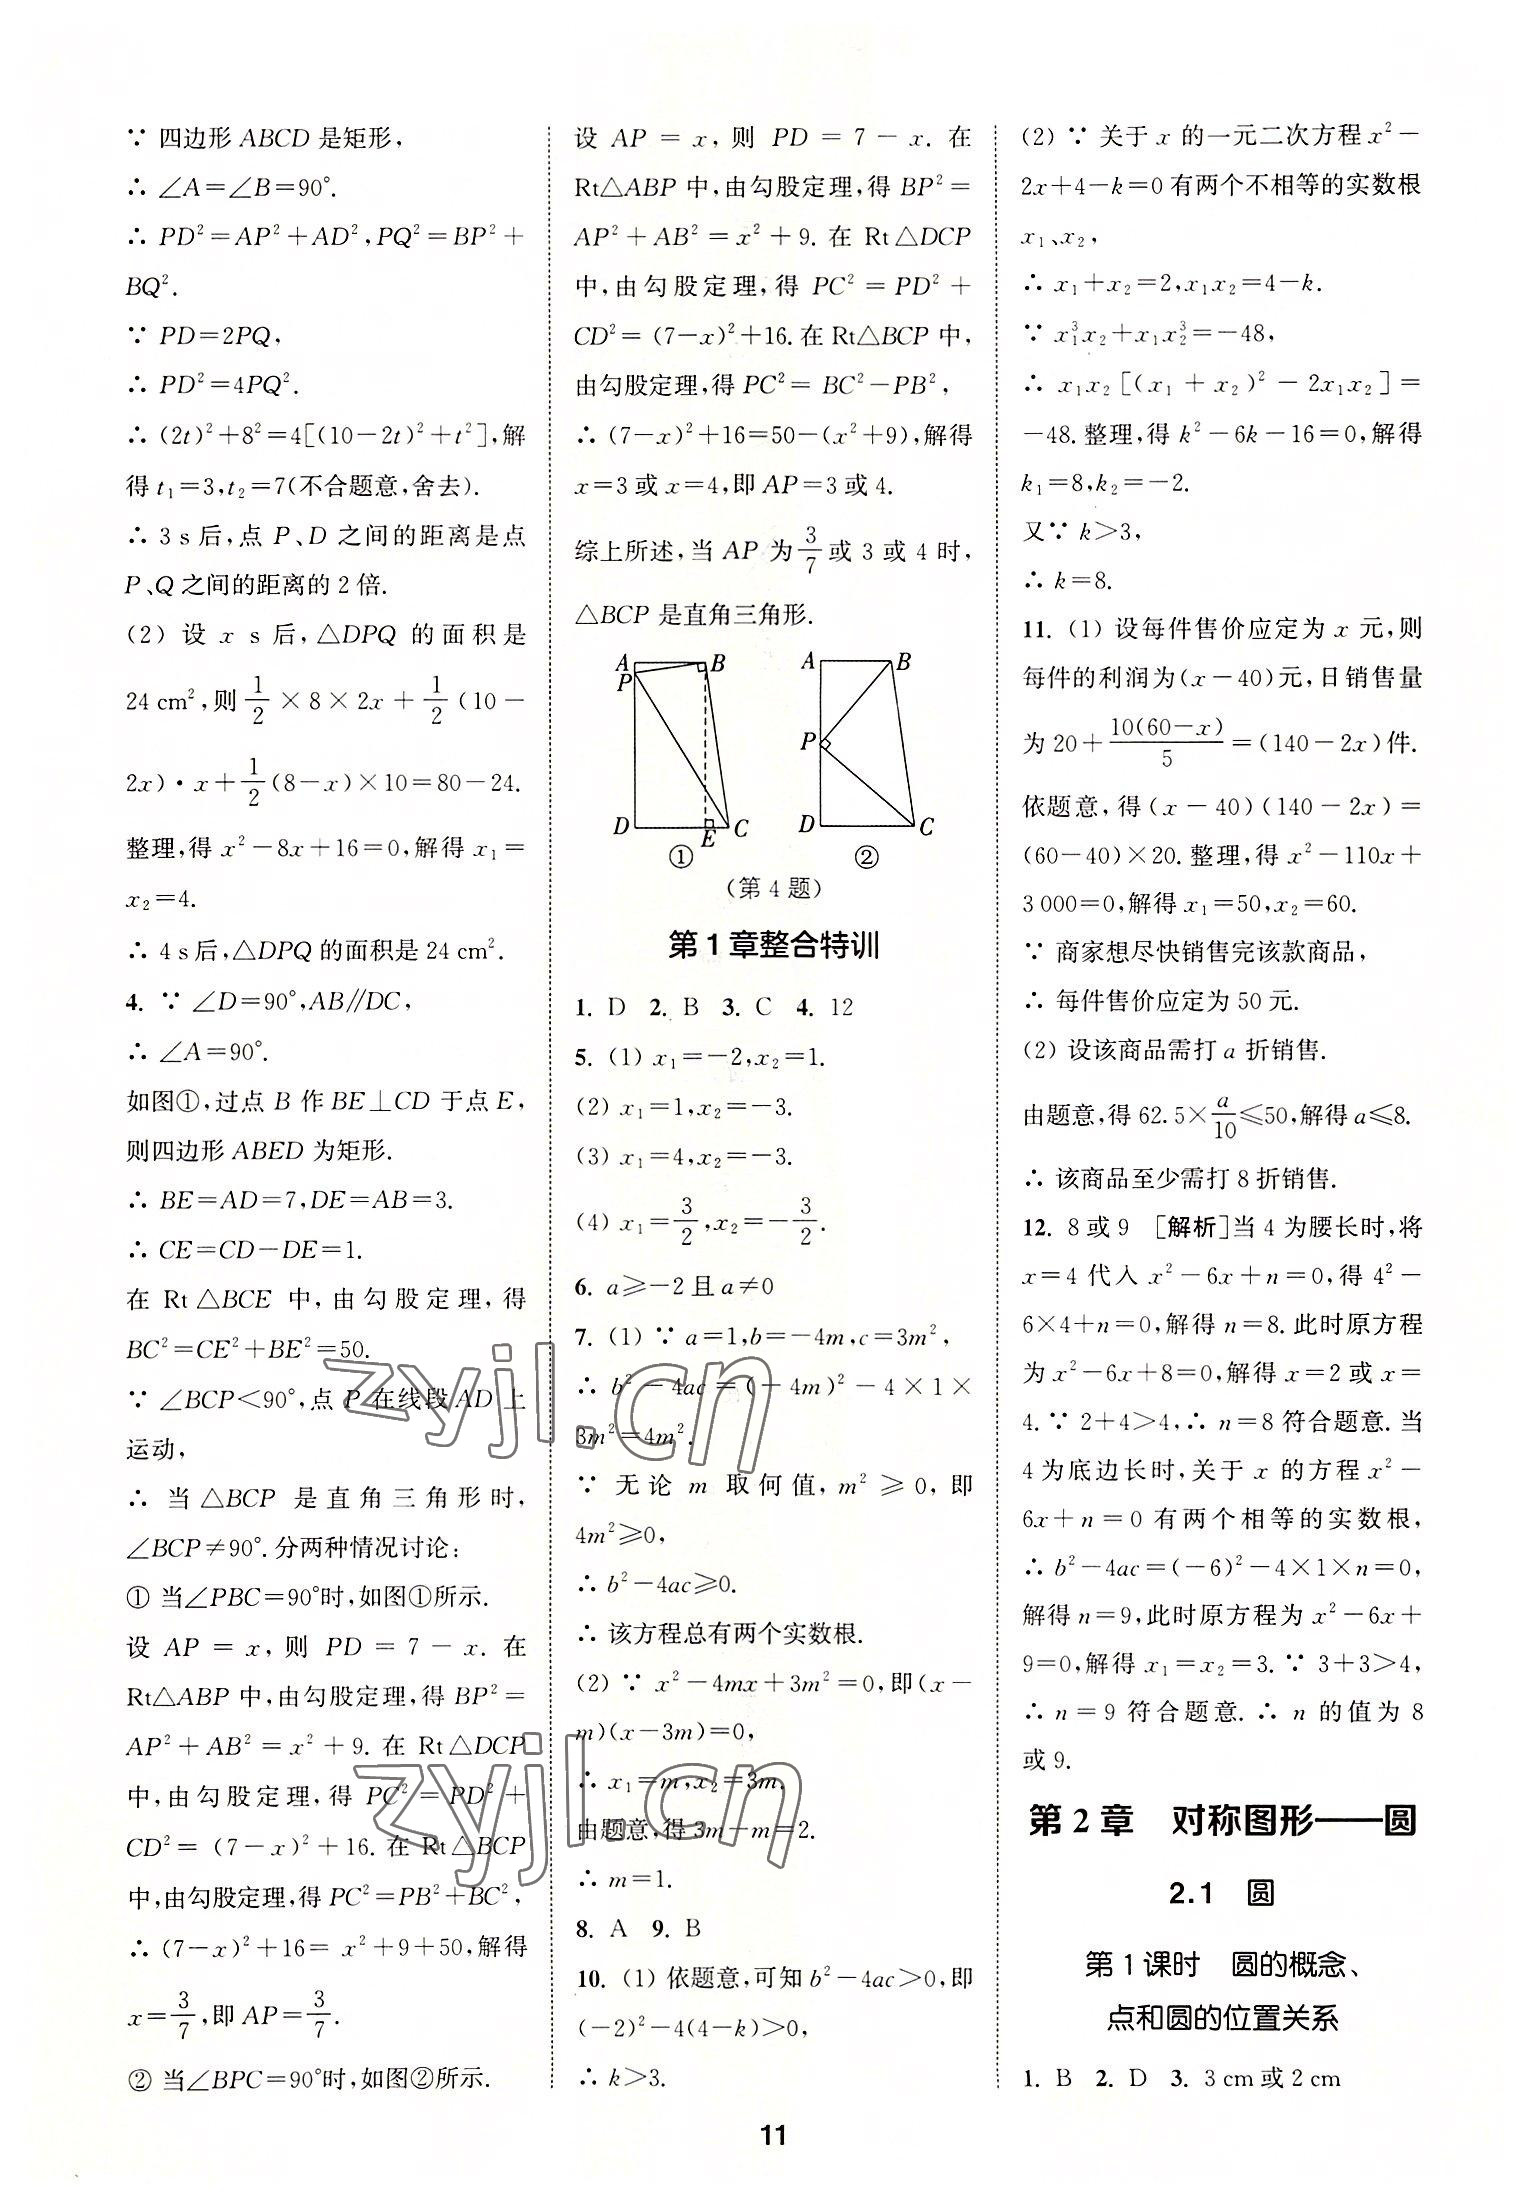 ∵ 四边形 ABCD 是矩形,
∴ ∠A=∠B=90°.
∴ PD²=AP²+AD²,PQ²=BP²+
BQ².
∵ PD=2PQ,
∴ PD²=4PQ².
∴ (2t)²+8²=4[(10-2t)²+t²],解
得 t₁=3,t₂=7(不合题意,舍去).
∴ 3 s 后,点 P、D 之间的距离是点
P、Q 之间的距离的 2 倍.
(2) 设 x s 后,△DPQ 的面积是
24 cm²,则 1/2 × 8 × 2x + 1/2 (10-
2x)·x+1/2(8-x)×10=80-24.
整理,得 x²-8x+16=0,解得 x₁=
x₂=4.
∴ 4 s 后,△DPQ 的面积是 24 cm².
4. ∵ ∠D=90°,AB∥DC,
∴ ∠A=90°.
如图①,过点 B 作 BE⊥CD 于点 E,
则四边形 ABED 为矩形.
∴ BE=AD=7,DE=AB=3.
∴ CE=CD-DE=1.
在 Rt△BCE 中,由勾股定理,得
BC²=CE²+BE²=50.
∵ ∠BCP<90°,点 P 在线段 AD 上
运动,
∴ 当 △BCP 是直角三角形时,
∠BCP≠90°.分两种情况讨论:
① 当∠PBC=90°时,如图①所示.
设 AP = x,则 PD = 7 - x. 在
Rt△ABP 中,由勾股定理,得 BP²=
AP²+AB²=x²+9. 在 Rt△DCP
中,由勾股定理,得 PC²=PD²+
CD²=(7-x)²+16.在 Rt△BCP
中,由勾股定理,得 PC²=PB²+BC²,
∴ (7-x)²+16= x²+9+50,解得
x=3/7,即 AP=3/7.
② 当∠BPC=90°时,如图②所示.
设 AP = x,则 PD = 7 - x. 在
Rt△ABP 中,由勾股定理,得 BP²=
AP²+AB²=x²+9. 在 Rt△DCP
中,由勾股定理,得 PC²=PD²+
CD²=(7-x)²+16.在 Rt△BCP 中,
由勾股定理,得 PC²= BC²-PB²,
∴ (7-x)²+16=50-(x²+9),解得
x=3 或 x=4,即 AP=3 或 4.
综上所述,当 AP 为 3/7 或 3 或 4 时,
△BCP 是直角三角形.
A B A B
P
P
D E C D C
① ②
(第 4 题)
第 1 章整合特训
1. D 2. B 3. C 4. 12
5. (1) x₁=-2,x₂=1.
(2) x₁=1,x₂=-3.
(3) x₁=4,x₂=-3.
(4) x₁=3/2,x₂=-3/2.
6. a≥-2 且 a≠0
7. (1) ∵ a=1,b=-4m,c=3m²,
∴ b²-4ac=(-4m)²-4×1×
3m²=4m².
∵ 无论 m 取何值,m²≥0,即
4m²≥0,
∴ b²-4ac≥0.
∴ 该方程总有两个实数根.
(2) ∵ x²-4mx+3m²=0,即(x-
m)(x-3m)=0,
∴ x₁=m,x₂=3m.
由题意,得 3m-m=2.
∴ m=1.
8. A 9. B
10. (1) 依题意,可知 b²-4ac>0,即
(-2)²-4(4-k)>0,
∴ k>3.
(2) ∵ 关于 x 的一元二次方程 x²-
2x+4-k=0 有两个不相等的实数根
x₁、x₂,
∴ x₁+x₂=2,x₁x₂=4-k.
∵ x₁³x₂+x₁x₂³=-48,
∴ x₁x₂[(x₁+x₂)²-2x₁x₂]=
-48.整理,得 k²-6k-16=0,解得
k₁=8,k₂=-2.
又∵ k>3,
∴ k=8.
11. (1) 设每件售价应定为 x 元,则
每件的利润为(x-40)元,日销售量
为 20+10(60-x)/5=(140-2x)件.
依题意,得(x-40)(140-2x)=
(60-40)×20.整理,得 x²-110x+
3 000=0,解得 x₁=50,x₂=60.
∵ 商家想尽快销售完该款商品,
∴ 每件售价应定为 50 元.
(2) 设该商品需打 a 折销售.
由题意,得 62.5×a/10≤50,解得 a≤8.
∴ 该商品至少需打 8 折销售.
12. 8 或 9 [解析]当 4 为腰长时,将
x=4 代入 x²-6x+n=0,得 4²-
6×4+n=0,解得 n=8. 此时原方程
为 x²-6x+8=0,解得 x=2 或 x=
4.∵ 2+4>4,∴ n=8 符合题意. 当
4 为底边长时,关于 x 的方程 x²-
6x+n=0 有两个相等的实数根,
∴ b²-4ac=(-6)²-4×1×n=0,
解得 n=9,此时原方程为 x²-6x+
9=0,解得 x₁=x₂=3.∵ 3+3>4,
∴ n=9 符合题意. ∴ n 的值为 8
或 9.
第 2 章 对称图形——圆
2.1 圆
第 1 课时 圆的概念、
点和圆的位置关系
1. B 2. D 3. 3 cm 或 2 cm
11
zyjl.cn
zyjl.cn